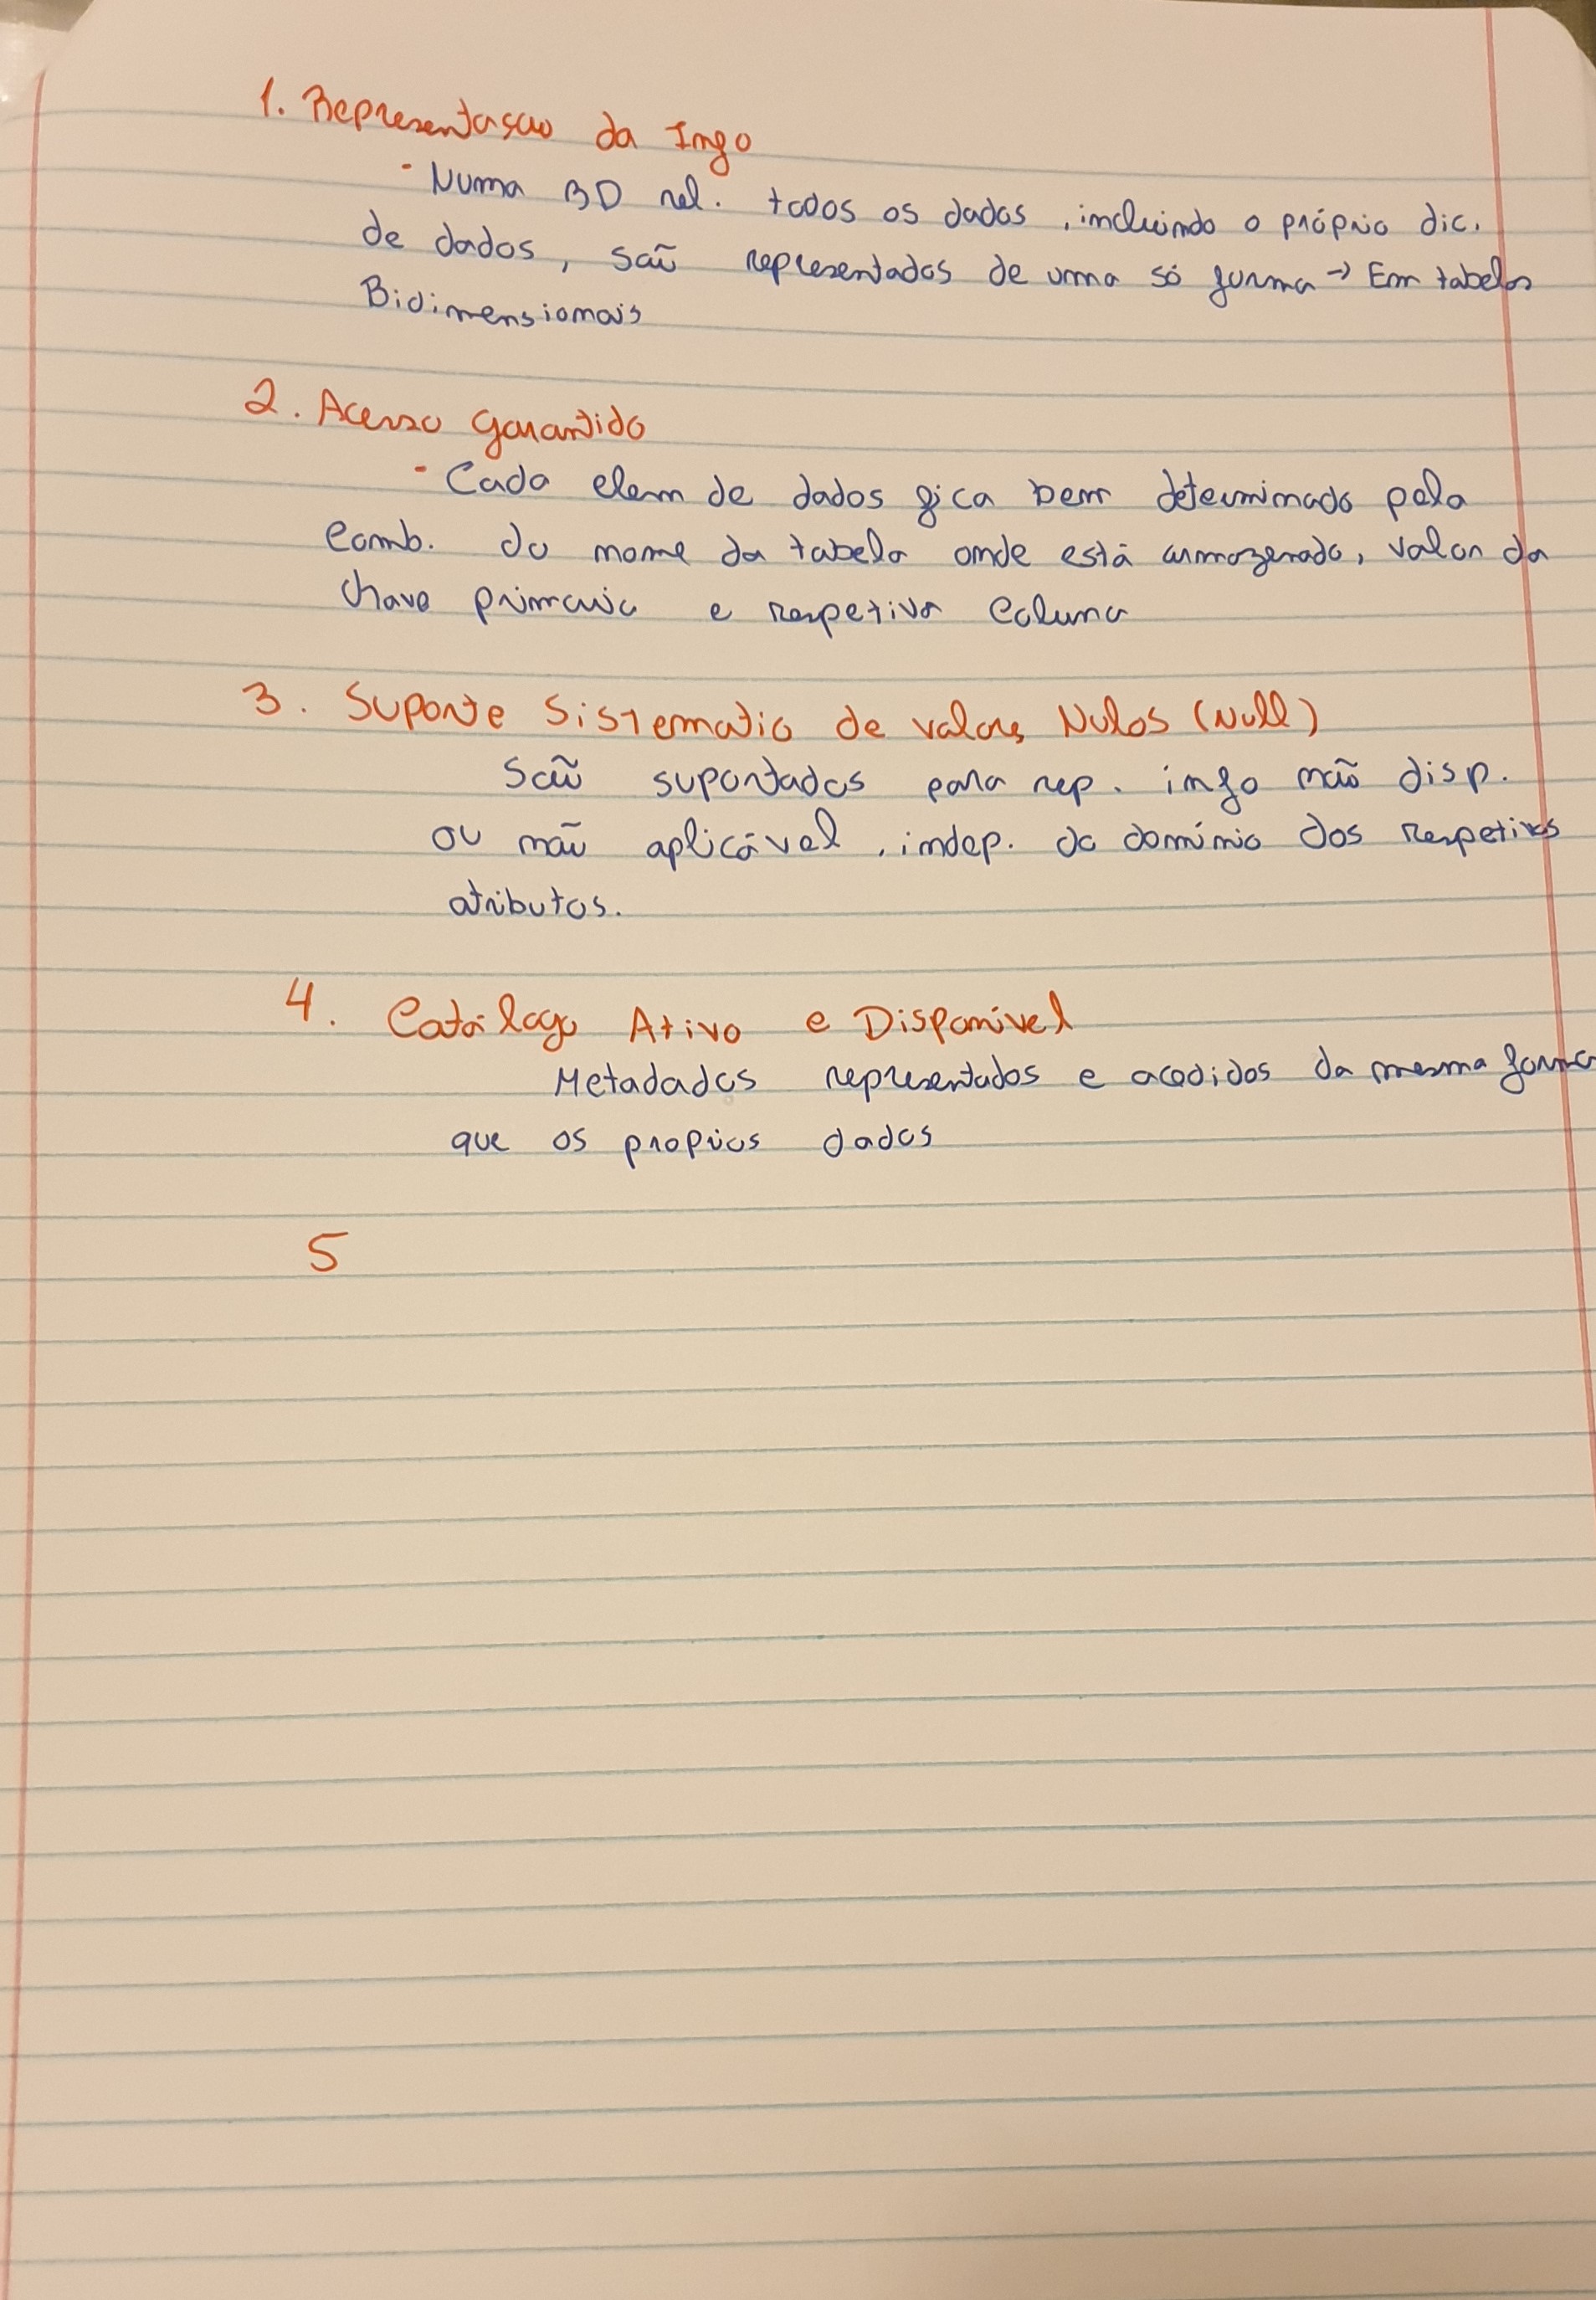 1. Representasao da Info
- Numa BD rel. todos os dados, incluindo o próprio dic.
de dados, são representados de uma só forma → Em tabelas
Bidimensionais
2. Acesso garantido
- Cada elem de dados fica bem determinado pela
comb. do nome da tabela onde está armazenado, valor da
chave primaria e respetiva coluna
3. Suporte Sistematio de valores Nulos (Null)
São suportados para rep. info não disp.
ou não aplicável, indep. do domínio dos respetivos
atributos.
4. Catálogo Ativo e Disponível
Metadados representados e acedidos da mesma forma
que os proprios dados
5